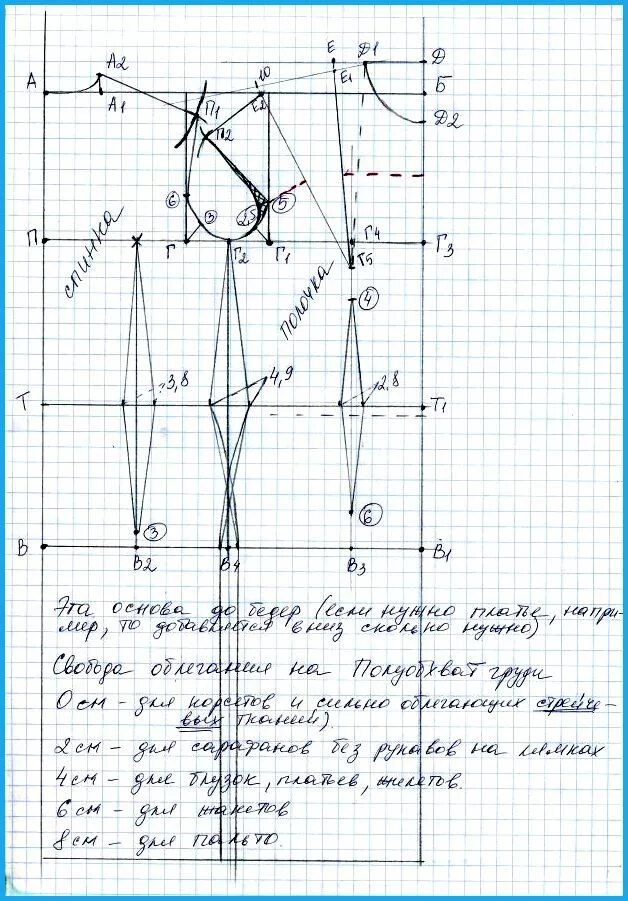 Е Д1 Д
А2 10 Е1
А А1 Е2 Б
П1 Д2
П2
6 5
3 2,5
П Г Г2 Г1 Г4 Г3
спинка Г5
полочка 4
3,8 4,9 2,8
Т Т1
6
3
В В2 В4 В3 В1
Эта основа до бедер (если нужно платье, напри-
мер, то добавляется вниз сколько нужно)
Свобода облегания на Полуобхват груди
0 см - для корсетов и сильно облегающих стрейче-
вых тканей).
2 см - для сарафанов без рукавов на лямках
4 см - для блузок, платьев, жилетов.
6 см - для жакетов
8 см - для пальто.